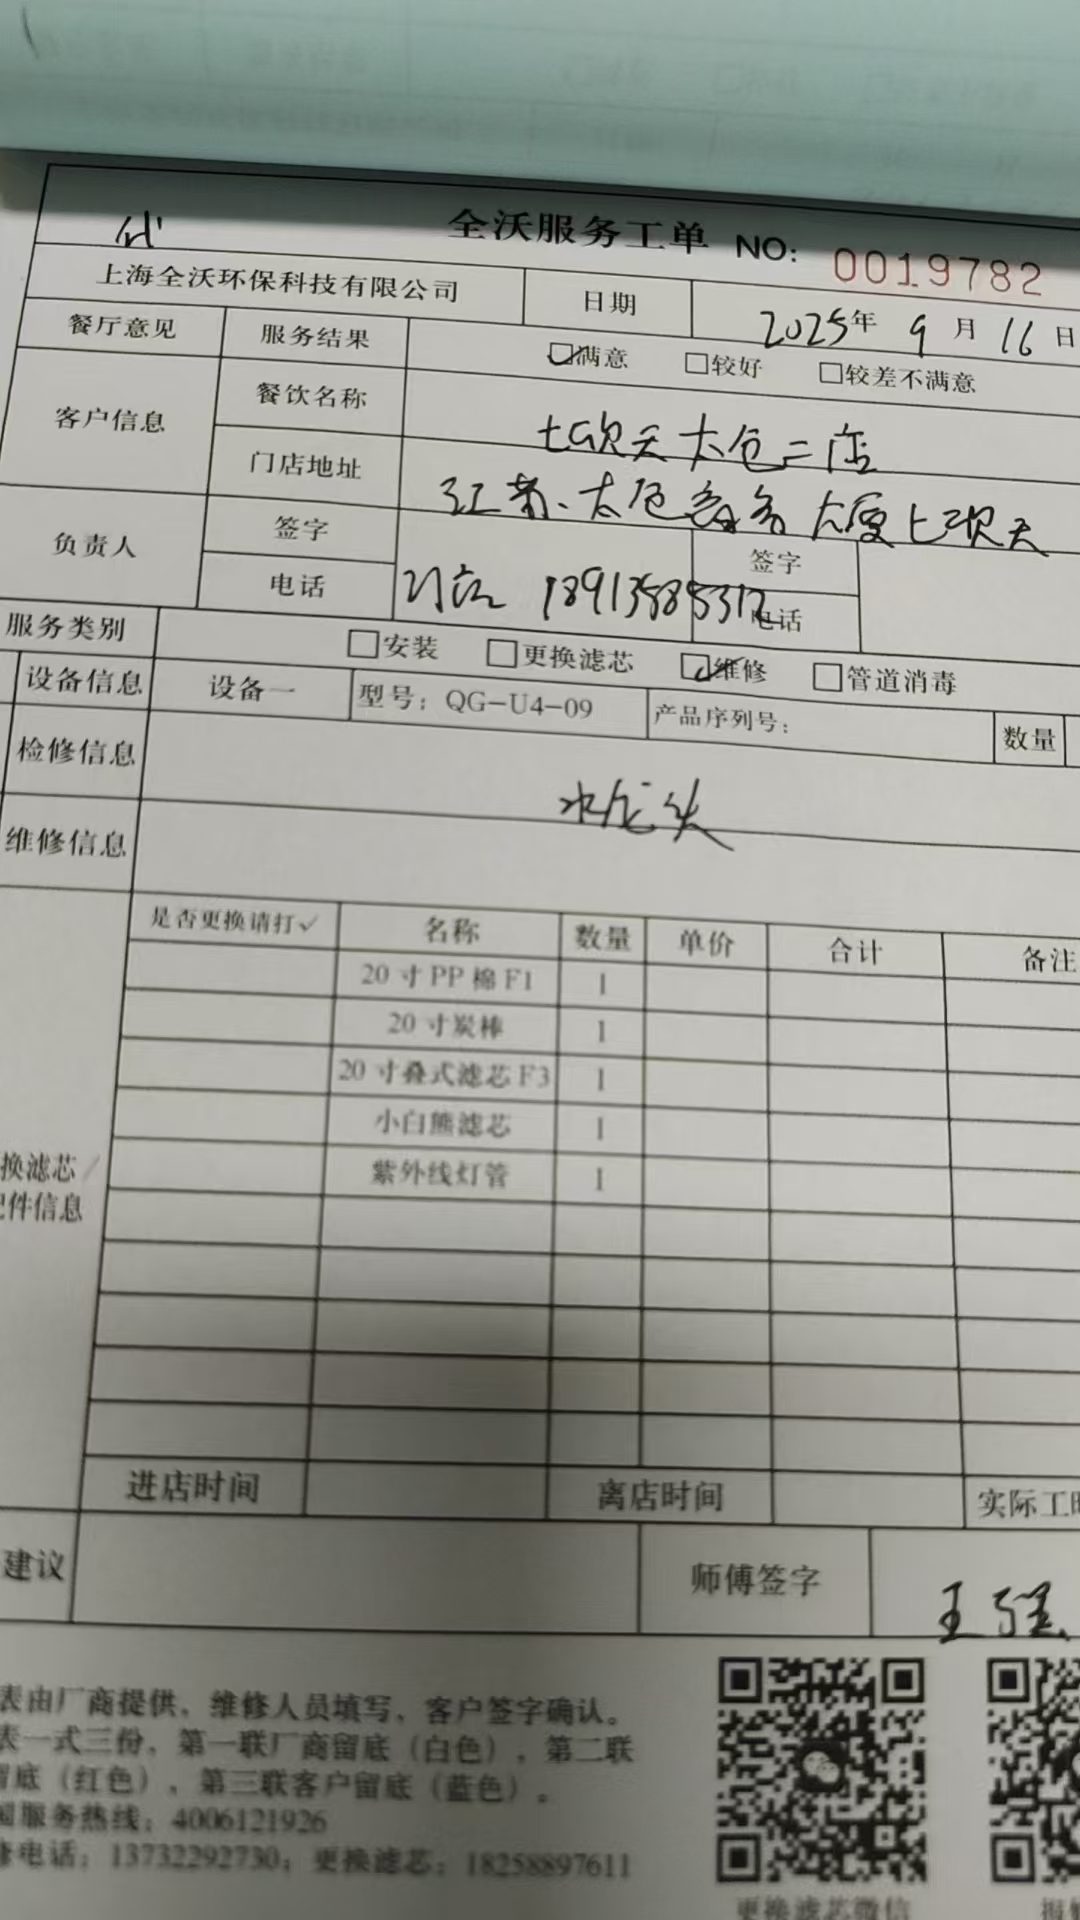 代
全沃服务工单 NO: 0019782
上海全沃环保科技有限公司 日期 2025年 9 月 16 日
餐厅意见 服务结果 ☑满意 □较好 □较差不满意
客户信息 餐饮名称 七欣天太仓二店
门店地址 江苏、太仓商务大厦七欣天
负责人 签字 签字
电话 18913585312 电话
服务类别 □安装 □更换滤芯 ☑维修 □管道消毒
设备信息 设备一 型号: QG-U4-09 产品序列号: 数量
检修信息 水龙头
维修信息
是否更换请打✓ 名称 数量 单价 合计 备注
20寸PP棉F1 1
20寸炭棒 1
20寸叠式滤芯F3 1
小白熊滤芯 1
紫外线灯管 1
换滤芯/
件信息
进店时间 离店时间 实际工时
建议 师傅签字 王强
表由厂商提供，维修人员填写，客户签字确认。
表一式三份，第一联厂商留底（白色），第二联
留底（红色），第三联客户留底（蓝色）。
国服务热线: 4006121926
修电话: 13732292730; 更换滤芯: 18258897611
更换滤芯微信 报